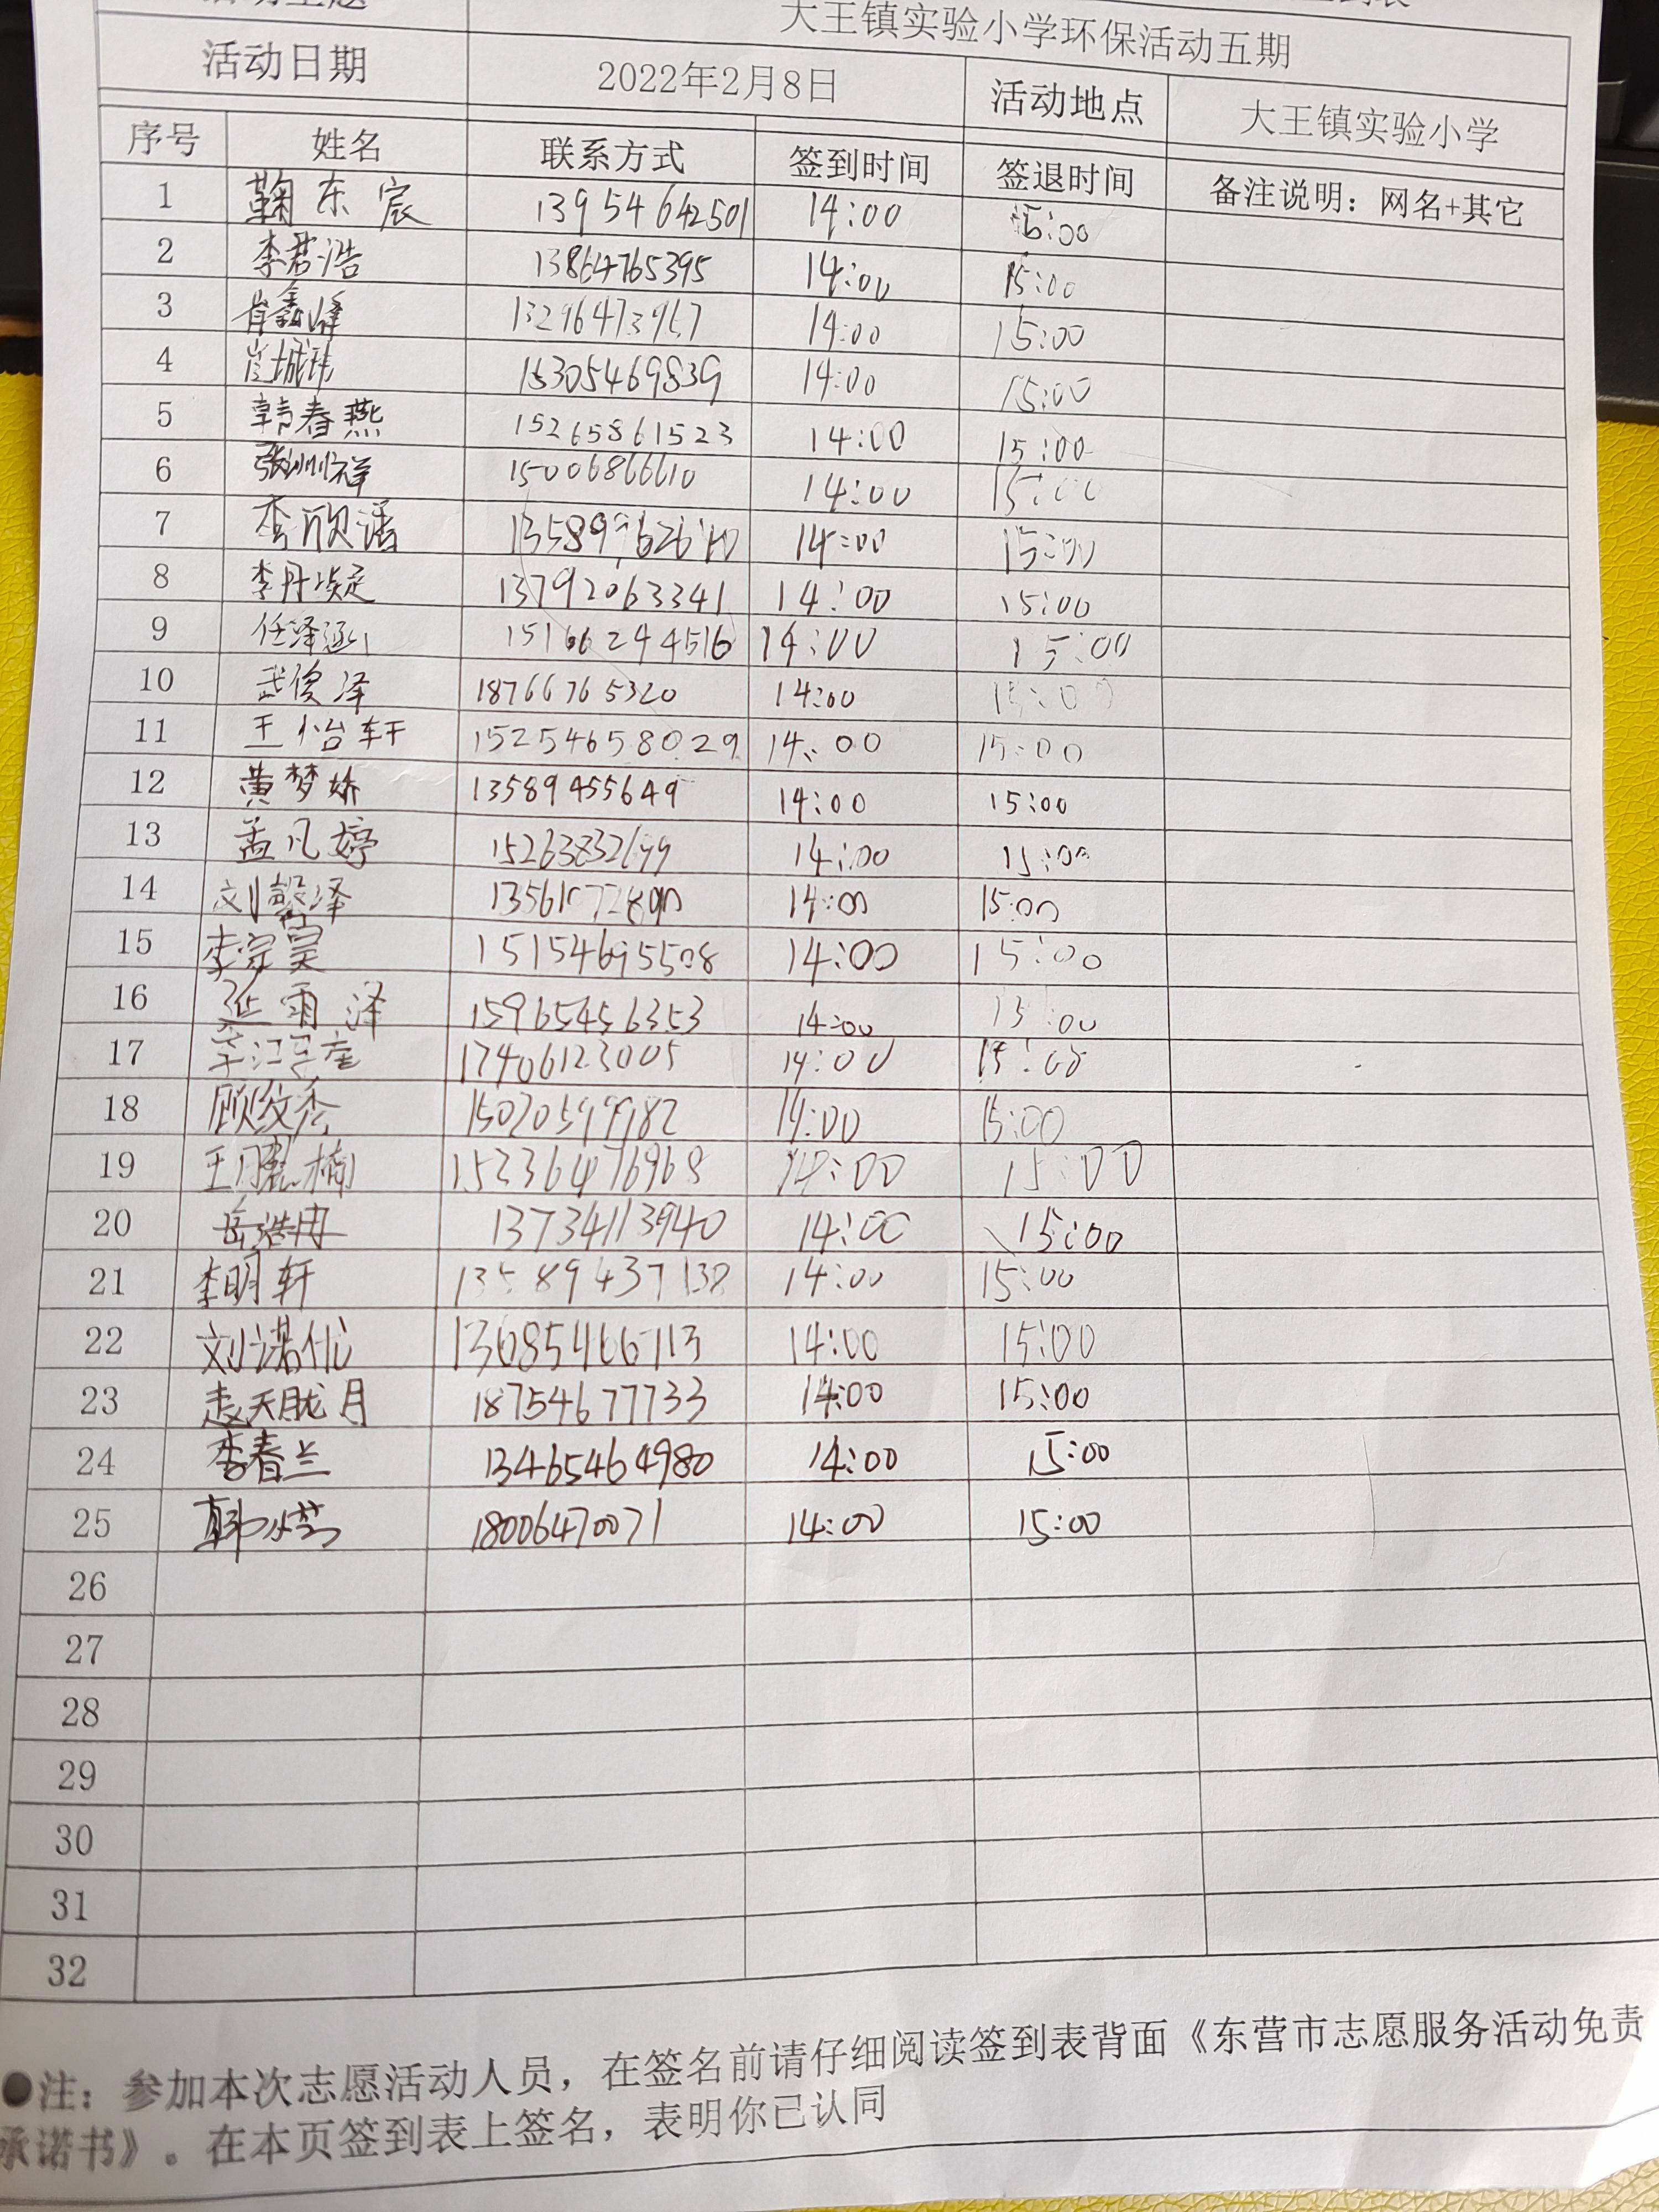 大王镇实验小学环保活动五期
活动日期 2022年2月8日 活动地点 大王镇实验小学
序号 姓名 联系方式 签到时间 签退时间 备注说明：网名+其它
1 鞠东宸 13954642501 14:00 15:00
2 李君浩 13864765395 14:00 15:00
3 肖鑫峰 14:00 15:00
4 肖城祎 14:00 15:00
5 韩春燕 15265861523 14:00 15:00
6 15006866610 14:00 15:00
7 李欣潘 14:00 15:00
8 李丹 13792063341 14:00 15:00
9 任泽涵 15166244516 14:00 15:00
10 武俊泽 18766765320 14:00 15:00
11 王怡轩 15254658029 14:00 15:00
12 黄梦娇 13589455649 14:00 15:00
13 孟凡婷 14:00 15:00
14 刘馨泽 14:00 15:00
15 李宗昊 15154695508 14:00 15:00
16 延雨泽 15965456353 14:00 15:00
17 17406123005 14:00 15:00
18 顾纹秀 15020599982 14:00 15:00
19 王 楠 15236476968 14:00 15:00
20 岳浩冉 13734113940 14:00 15:00
21 李明轩 13589437138 14:00 15:00
22 刘诺优 13685466713 14:00 15:00
23 赵天胧月 18754677733 14:00 15:00
24 李春兰 13465464980 14:00 15:00
25 韩 18006470071 14:00 15:00
26
27
28
29
30
31
32
●注：参加本次志愿活动人员，在签名前请仔细阅读签到表背面《东营市志愿服务活动免责
承诺书》。在本页签到表上签名，表明你已认同